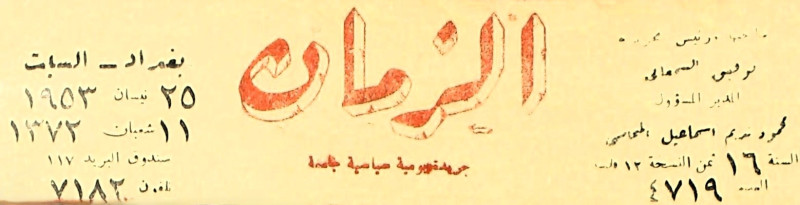 صاحبها ورئيس تحريرها
توفيق السمعاني
المدير المسؤول
محمود نديم اسماعيل المحامي
السنة ١٦ ثمن النسخة ١٢ فلسا
العدد ٤٧١٩
الزمان
جريدة يومية سياسية جامعة
بغداد - السبت
٢٥ نيسان ١٩٥٣
١١ شعبان ١٣٧٢
صندوق البريد ١١٧
تلفون ٧١٨٢